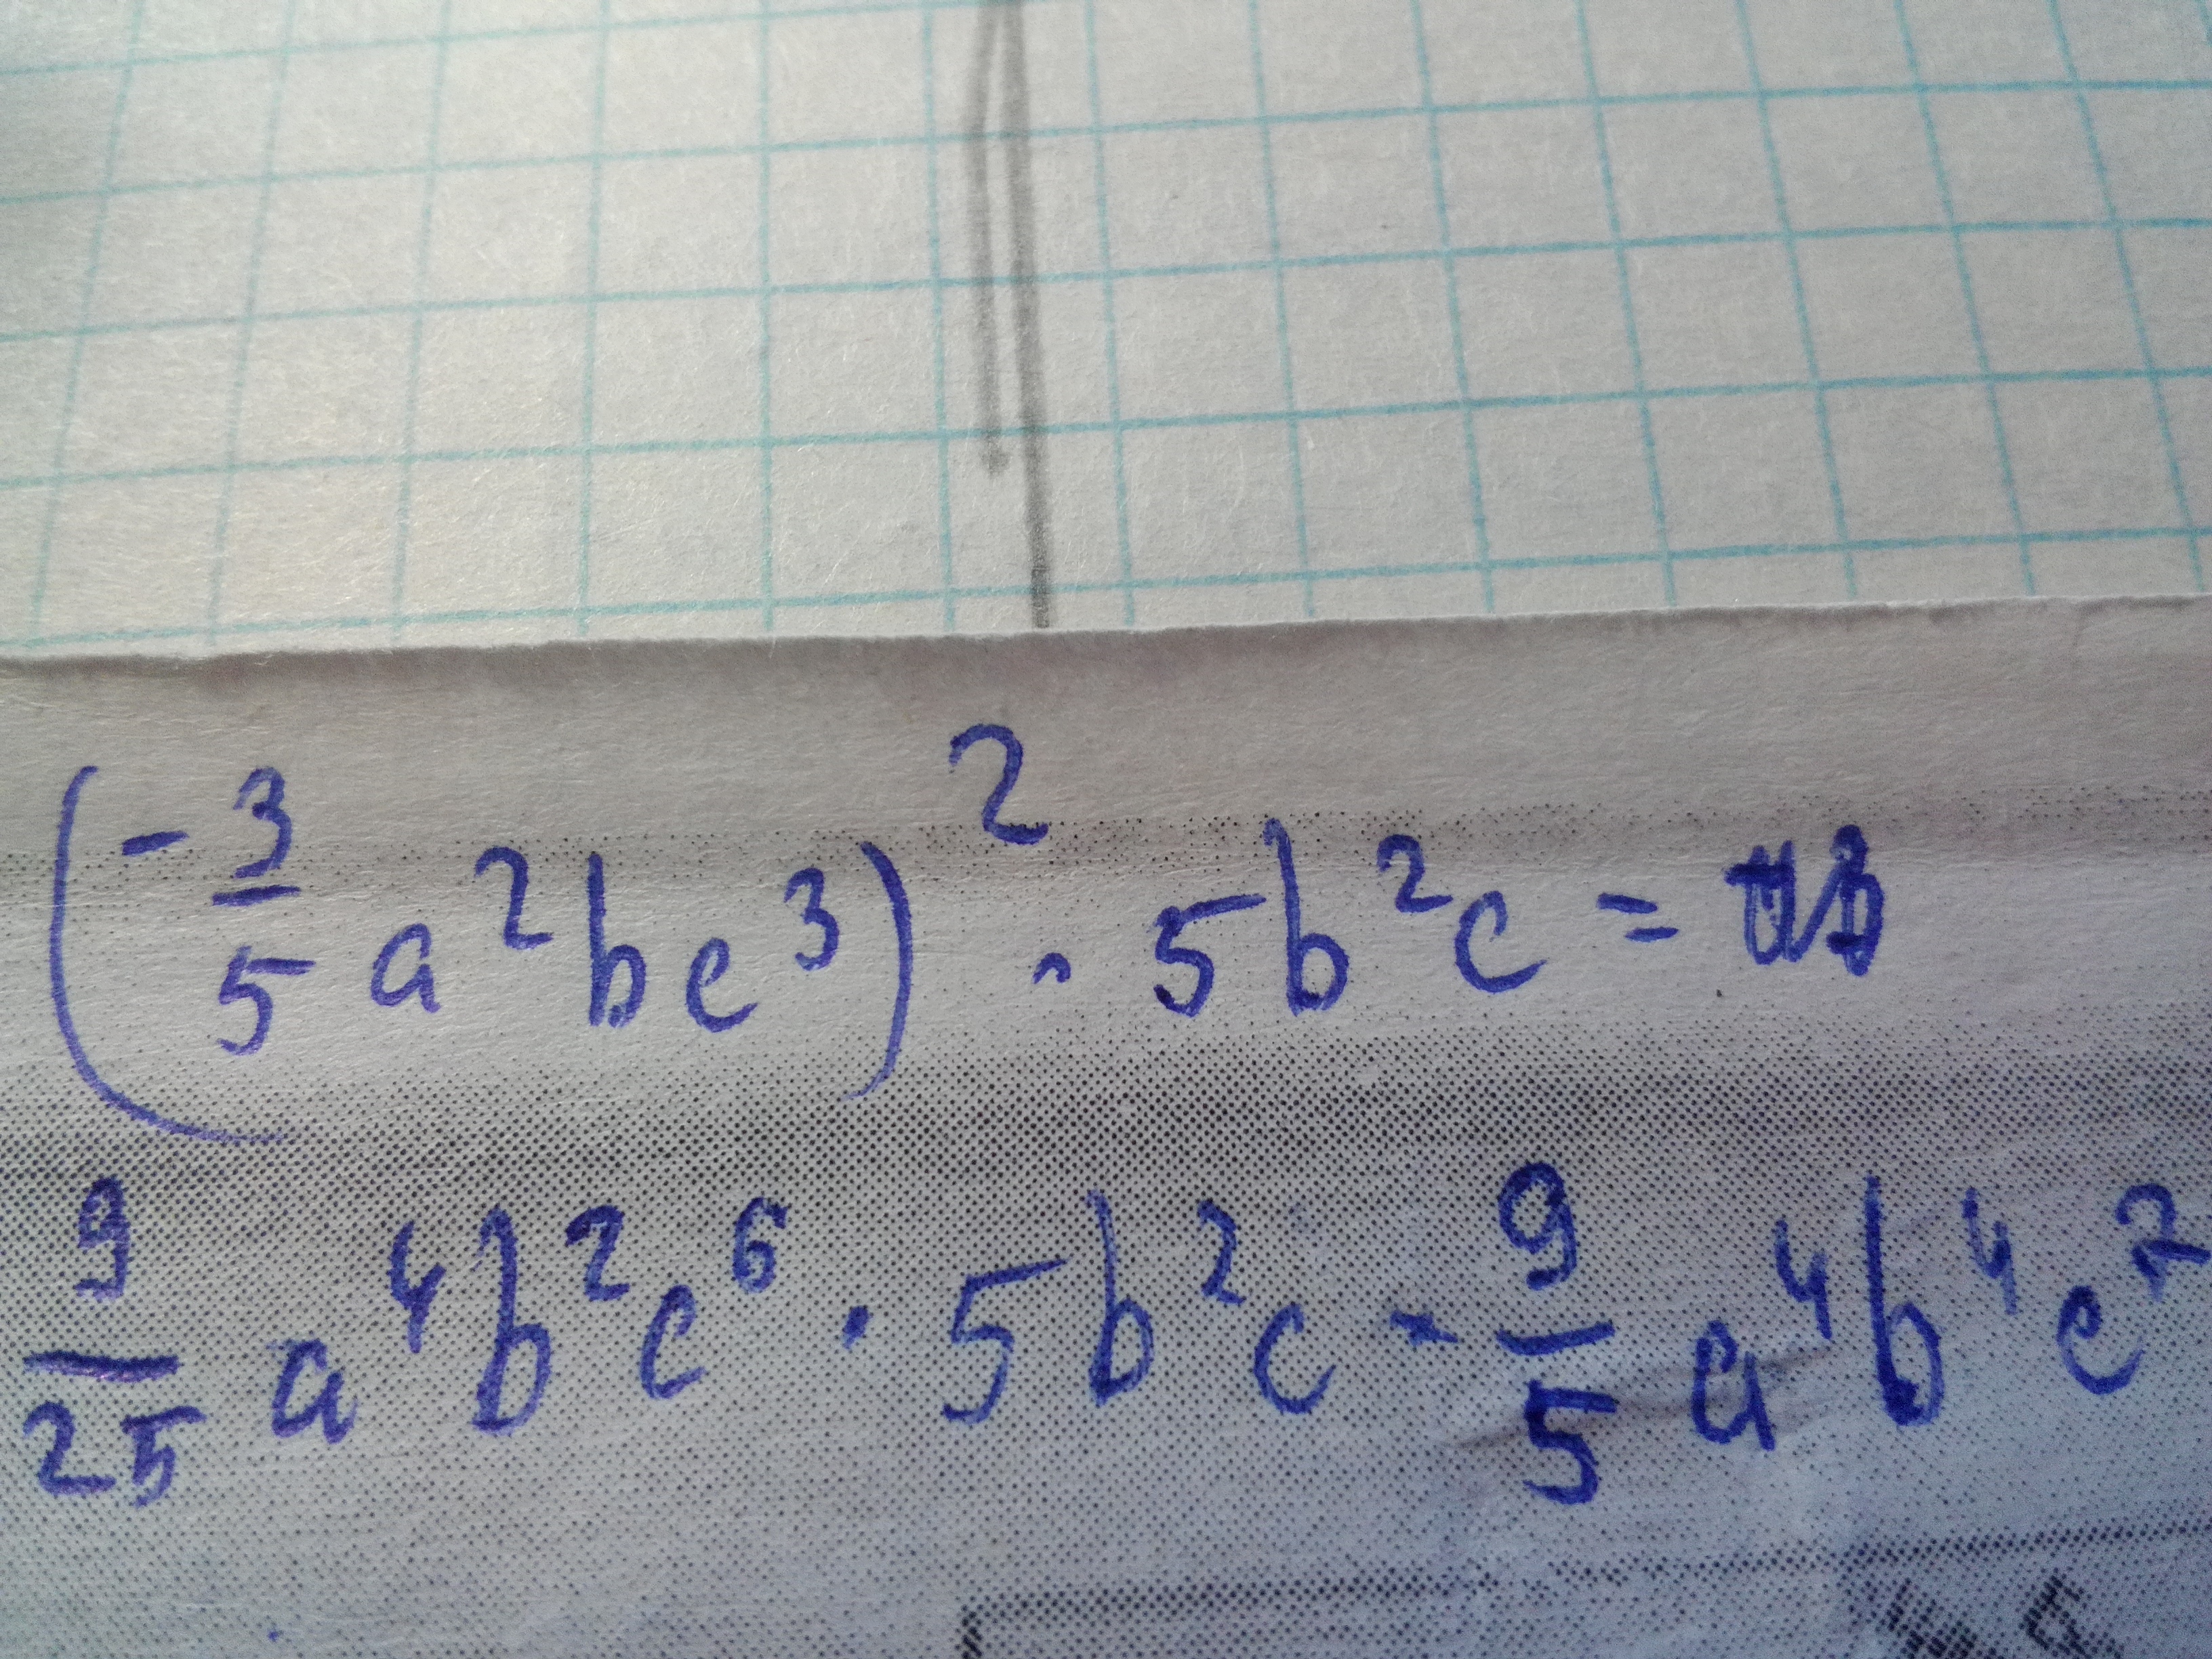 (-3/5 a²bc³)² · 5b²c =
9/25 a⁴b²c⁶ · 5b²c = 9/5 a⁴b⁴c⁷